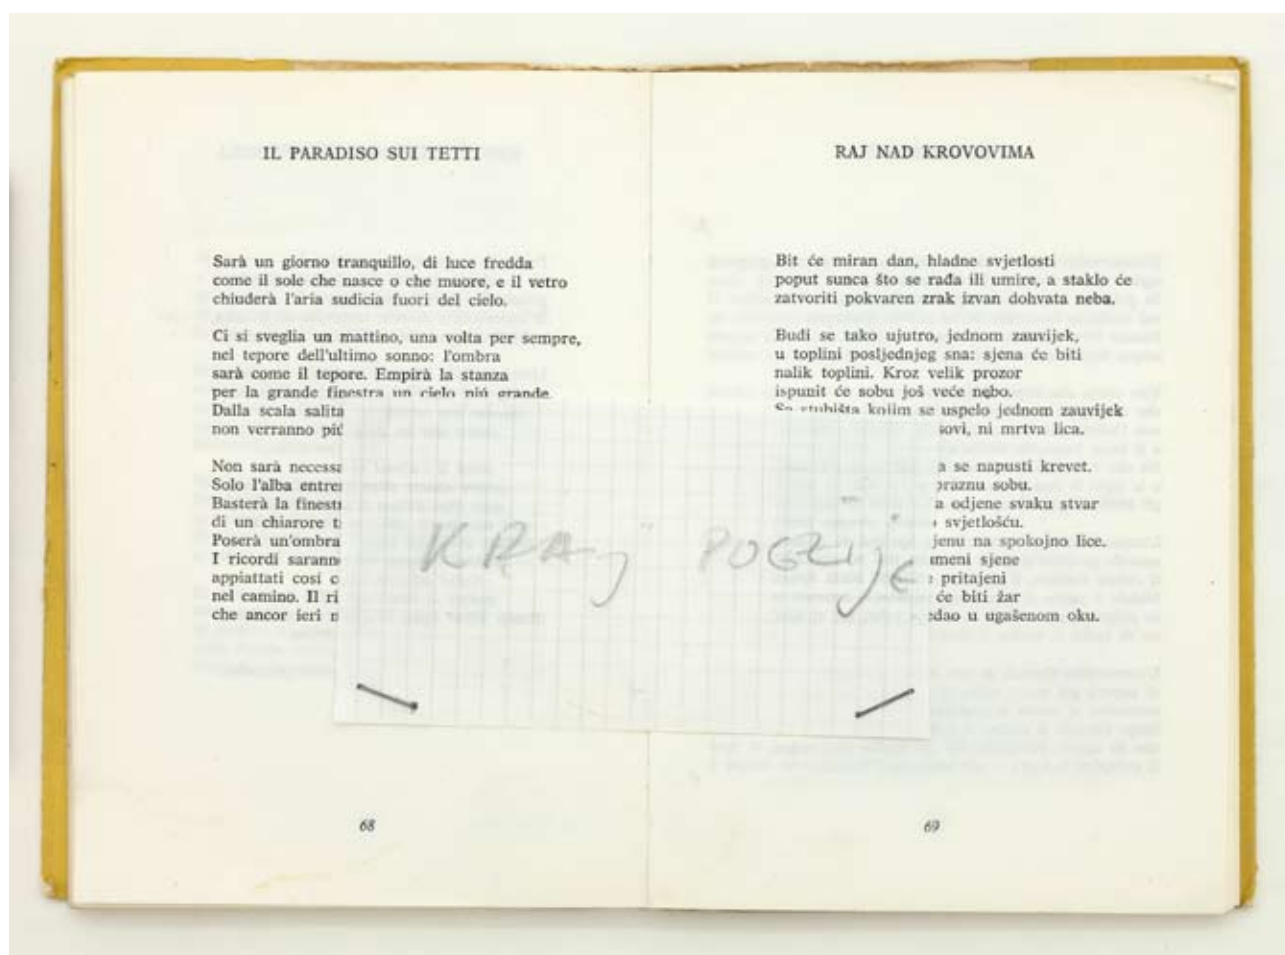 IL PARADISO SUI TETTI
Sarà un giorno tranquillo, di luce fredda
come il sole che nasce o che muore, e il vetro
chiuderà l'aria sudicia fuori del cielo.
Ci si sveglia un mattino, una volta per sempre,
nel tepore dell'ultimo sonno: l'ombra
sarà come il tepore. Empirà la stanza
per la grande finestra un cielo piú grande.
Dalla scala salita
non verranno piú
Non sarà necessa
Solo l'alba entre
Basterà la finest
di un chiarore t
Poserà un'ombra
I ricordi sarann
appiattati cosí c
nel camino. Il ri
che ancor ieri
68
RAJ NAD KROVOVIMA
Bit će miran dan, hladne svjetlosti
poput sunca što se rađa ili umire, a staklo će
zatvoriti pokvaren zrak izvan dohvata neba.
Budi se tako ujutro, jednom zauvijek,
u toplini posljednjeg sna: sjena će biti
nalik toplini. Kroz velik prozor
ispunit će sobu još veće nebo.
Sa stubišta kojim se uspelo jednom zauvijek
sovi, ni mrtva lica.
a se napusti krevet.
praznu sobu.
a odjene svaku stvar
svjetlošću.
jenu na spokojno lice.
meni sjene
pritajeni
će biti žar
edao u ugašenom oku.
69
KRAJ POEZIJE